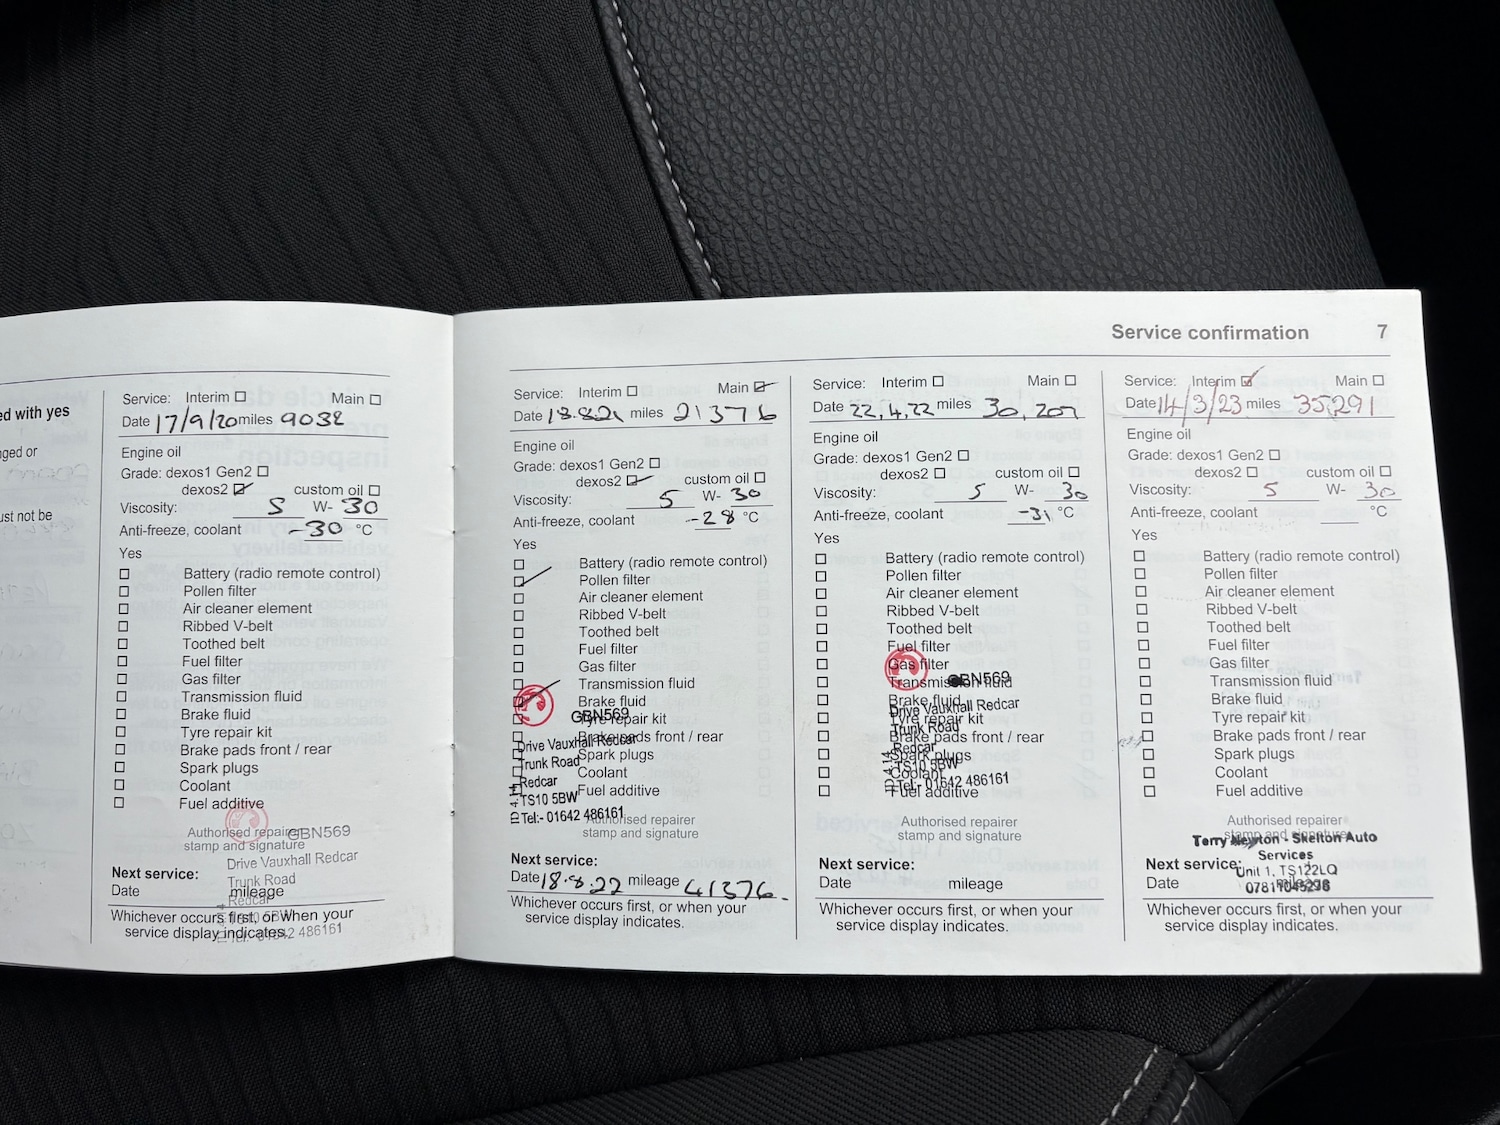 Service confirmation 7
ed with yes
ged or
ust not be
Service: Interim ☐ Main ☐
Date 17/9/20 miles 9032
Engine oil
Grade: dexos1 Gen2 ☐
dexos2 ☑ custom oil ☐
Viscosity: 5 W- 30
Anti-freeze, coolant -30 °C
Yes
☐ Battery (radio remote control)
☐ Pollen filter
☐ Air cleaner element
☐ Ribbed V-belt
☐ Toothed belt
☐ Fuel filter
☐ Gas filter
☐ Transmission fluid
☐ Brake fluid
☐ Tyre repair kit
☐ Brake pads front / rear
☐ Spark plugs
☐ Coolant
☐ Fuel additive
Authorised repairer
stamp and signature
GBN569
Drive Vauxhall Redcar
Trunk Road
Redcar
TS10 5BW
Tel:- 01642 486161
Next service:
Date mileage
Whichever occurs first, or when your
service display indicates.
Service: Interim ☐ Main ☑
Date 18.8.21 miles 21376
Engine oil
Grade: dexos1 Gen2 ☐
dexos2 ☑ custom oil ☐
Viscosity: 5 W- 30
Anti-freeze, coolant -28 °C
Yes
☐ Battery (radio remote control)
☑ Pollen filter
☐ Air cleaner element
☐ Ribbed V-belt
☐ Toothed belt
☐ Fuel filter
☐ Gas filter
☐ Transmission fluid
☑ Brake fluid
☐ Tyre repair kit
☐ Brake pads front / rear
☐ Spark plugs
☐ Coolant
☐ Fuel additive
GBN569
Drive Vauxhall Redcar
Trunk Road
Redcar
TS10 5BW
Tel:- 01642 486161
Authorised repairer
stamp and signature
Next service:
Date 18.8.22 mileage 41376.
Whichever occurs first, or when your
service display indicates.
Service: Interim ☐ Main ☐
Date 22,4,22 miles 30,207
Engine oil
Grade: dexos1 Gen2 ☐
dexos2 ☐ custom oil ☐
Viscosity: 5 W- 30
Anti-freeze, coolant -31 °C
Yes
☐ Battery (radio remote control)
☐ Pollen filter
☐ Air cleaner element
☐ Ribbed V-belt
☐ Toothed belt
☐ Fuel filter
☐ Gas filter
☐ Transmission fluid
☐ Brake fluid
☐ Tyre repair kit
☐ Brake pads front / rear
☐ Spark plugs
☐ Coolant
☐ Fuel additive
GBN569
Drive Vauxhall Redcar
Trunk Road
Redcar
TS10 5BW
Tel:- 01642 486161
Authorised repairer
stamp and signature
Next service:
Date mileage
Whichever occurs first, or when your
service display indicates.
Service: Interim ☑ Main ☐
Date 14/3/23 miles 35291
Engine oil
Grade: dexos1 Gen2 ☐
dexos2 ☐ custom oil ☐
Viscosity: 5 W- 30
Anti-freeze, coolant °C
Yes
☐ Battery (radio remote control)
☐ Pollen filter
☐ Air cleaner element
☐ Ribbed V-belt
☐ Toothed belt
☐ Fuel filter
☐ Gas filter
☐ Transmission fluid
☐ Brake fluid
☐ Tyre repair kit
☐ Brake pads front / rear
☐ Spark plugs
☐ Coolant
☐ Fuel additive
Authorised repairer
stamp and signature
Terry Newton - Skelton Auto
Services
Unit 1, TS122LQ
07811045238
Next service:
Date mileage
Whichever occurs first, or when your
service display indicates.